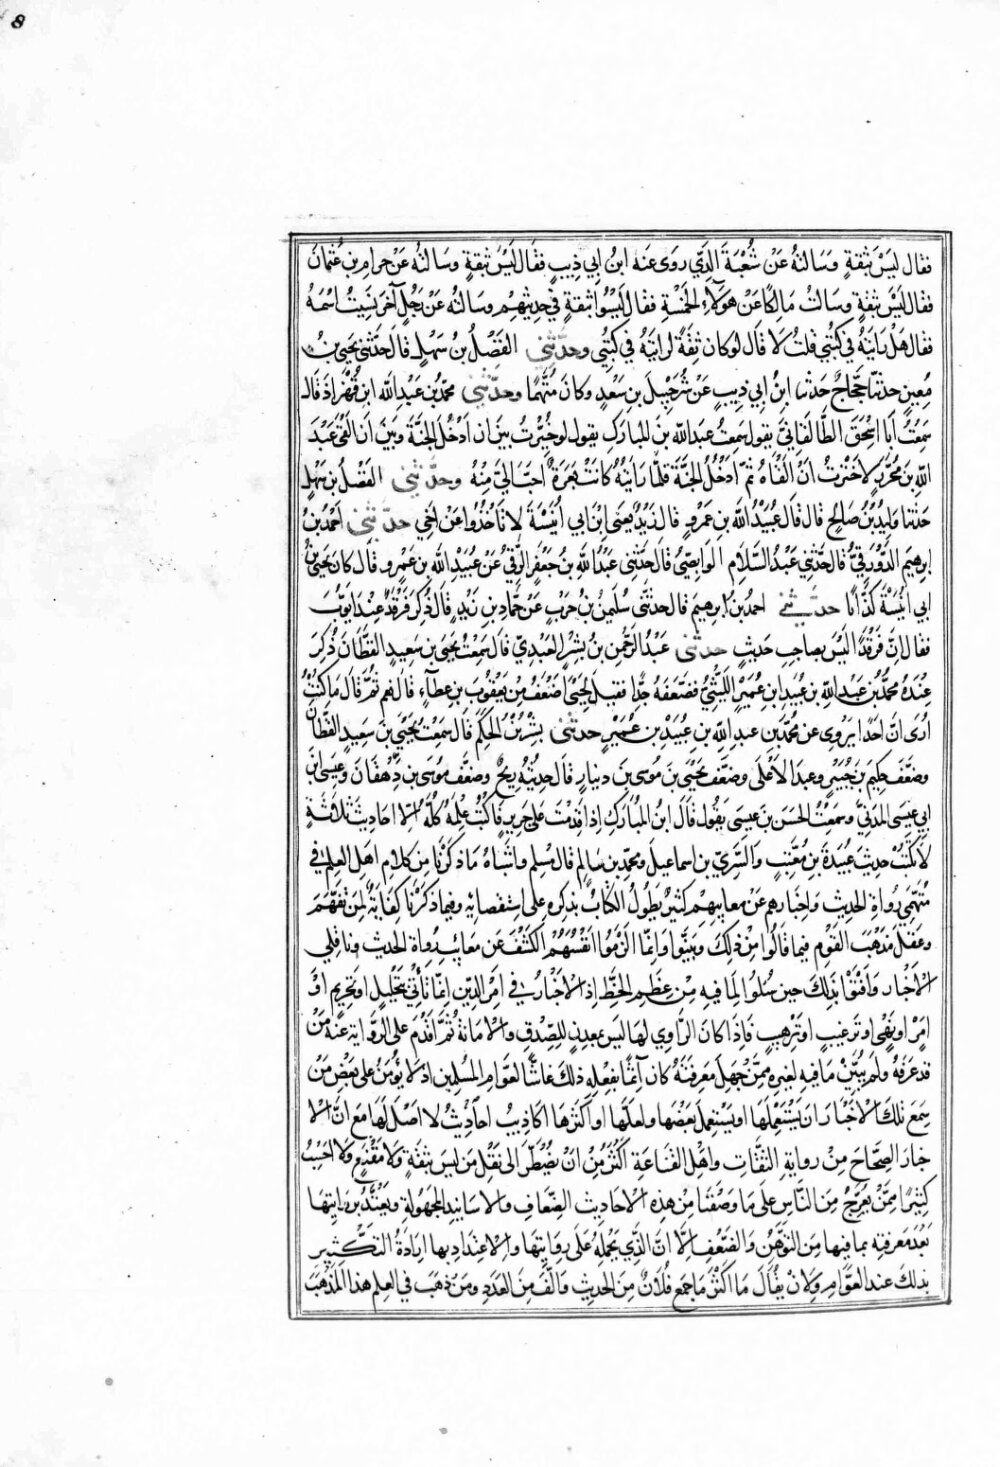 8
فقال ليس بثقةٍ وسالتهُ عَنْ شُعْبَةَ الذي روى عنه ابنُ ابي ذيبٍ فقال ليس بثقةٍ وسالتهُ عَنْ حرام بن عثمان
فقال ليس بثقةٍ وسالتُ مالكًا عَنْ هولاء الخمسةِ فقال ليسُوا بثقةٍ في حديثهم وسالتهُ عن رجلٍ آخر نسيتُ اسْمَهُ
فقال هل رايتهُ في كتبي قلتُ لا قال لو كان ثقةً لرايتهُ في كتبي وحدثني الفضلُ بن سهلٍ قال حدثني يحيى بنُ
مُعينٍ حدثنا حجاجٌ حدثنا ابنُ ابي ذيبٍ عَنْ شرحبيلَ بن سَعْدٍ وكان مُتّهَمًا وحدثني محمدُ بن عبد الله ابن قُهْزاذ قال
سَمِعْتُ ابَا اسْحٰق الطالقانيَّ يقول سمِعْتُ عبد الله بن المبارك يقول لو خُيِّرتُ بين ان ادخل الجنّةَ وبين ان القى عَبْدَ
الله بن مُحرَّرٍ لاخترتُ ان القاهُ ثمّ ادخُلُ الجنّةَ فلمّا رايتهُ كانتْ بعرَةٌ احبَّ اليَّ مِنْهُ وحدّثني الفضل بن سَهْلٍ
حدثنا وليدُ بنُ صالحٍ قال قال عبيدُ الله بن عَمْروٍ قال زَيْدٌ يعنى ابن ابي اُنَيْسَةَ لا تاخذوا عن اخي حدثني احمدُ بنُ
ابرهيم الدَّوْرقيُّ قال حدّثني عَبْدُ السَّلام الوابصيُّ قال حدثني عبدُ الله بنُ جعفرٍ الرقيُّ عَنْ عُبيْدِ الله بن عمروٍ قال كان يحيى بنُ
ابي اُنَيْسَةَ كذّابًا حدثني احمدُ بن ابرهيم قال حدثني سُلَيمٰنُ بنُ حربٍ عَنْ حمّادِ بن زيدٍ قال ذُكِرَ فَرْقَدٌ عِنْدَ ايّوبَ
فقال انّ فَرْقدًا ليْسَ بصاحب حديثٍ حدثني عبدُ الرّحمٰن بنُ بشرٍ العبديّ قال سمعتُ يحيى بن سَعيدٍ القطّانَ ذُكِرَ
عِنْدهُ محمّدُ بن عبد الله بن عُبيد ابن عُميرٍ الليثيُّ فضعّفهُ جدًّا فقيل ليحيٰى اضعفُ مِنْ يعقوبَ بن عطآءٍ قال نعم ثمّ قال ما كنتُ
اُرى انّ احدًا يروى عن محمّدِ بن عبد الله بن عُبيْد بن عُميرٍ حدثني بِشْرُ بنُ الحكم قال سمعْتُ يحيٰي بن سعيدٍ القطّان
وضعّفَ حكيم بن جُبيْرٍ وعبد الاَعْلى وضعّف يحيٰى بن مُوسى بن دينارٍ قال حديثُه ريحٌ وضعّف موسى بن دهقان وعيسى ابن
ابي عيسَى المدنيَّ وسمعتُ الحسَن بن عيسى يقول قال ابنُ المُبارك إذا قدمْتَ على جريرٍ فاكتب علمهُ كلّهُ الّا احاديثَ ثلاثةٍ
لا تكتبْ حديثَ عُبَيْدَةَ بن مُعَتّبٍ والسّريّ بن اسماعيل ومحمّد بن سَالم قال مُسلم واشباهُ ما ذكرْنا مِن كلامِ اهل العِلم في
مُتّهمى رُواة الحديث واخبارهم عن معايبهم كثيرٌ يطولُ الكتابُ بذكره على استقصائه وفيما ذكرنا كفايةٌ لمن تفهّم
وعقل مذهَبَ القوْم فيما قالُوا مِنْ ذلك وبيّنوا وإنّما الزموا انفسهُمُ الكشفَ عن معايب رُواة الحديث وناقلي
الاَخْبار وافتوْا بذلك حين سُئلُوا لما فيه مِنْ عظيم الخطر إذ الاَخْبارُ في امر الدّين انّما تأتي بتحليلٍ او تحريم اوْ
امرٍ او نهيٍ او ترغيبٍ او ترهيبٍ فإذا كان الرّاوي لها ليس بمعدنٍ للصّدق والامانة ثمّ اقدم على الرّواية عنهُ مَنْ
قد عرفهُ ولم يُبيّنْ ما فيه لغيره ممّن جهِل معرفتهُ كان آثمًا بفعله ذلك غاشًّا لعوامّ المُسلمين اذ لا يُؤمنُ على بعض مَنْ
سمع تلك الاَخْبار ان يسْتعْملها او يستعمل بعْضها ولعلّها او اكثرها اكاذيبُ احاديثُ لا اصل لها مع انّ الاَ
خبارَ الصِّحاحَ مِنْ روايةِ الثّقاتِ واهْلِ القناعةِ اكثرُ مِنْ انْ يُضْطرّ الى نقْلِ مَن ليس بثقةٍ ولا مَقْنعٍ ولا احسِبُ
كثيرًا ممّنْ يُعرّجُ مِنَ النّاس على ما وصفْنا مِنْ هذه الاَحاديث الضِّعاف والاَسانيد المجهولةِ ويعْتدُّ بروايتها
بعْد معرفته بما فيها مِنَ التوهُّنِ والضّعْفِ الّا انّ الّذي يحْمِلهُ على روايتها والاِعتدادِ بها ارادةُ التكثيرِ
بذلك عند العوامّ ولان يُقالَ ما اكثر ما جمع فُلانٌ مِنَ الحديث والّفَ مِن العددِ ومن ذهبَ في العِلم هذا المذْهبَ